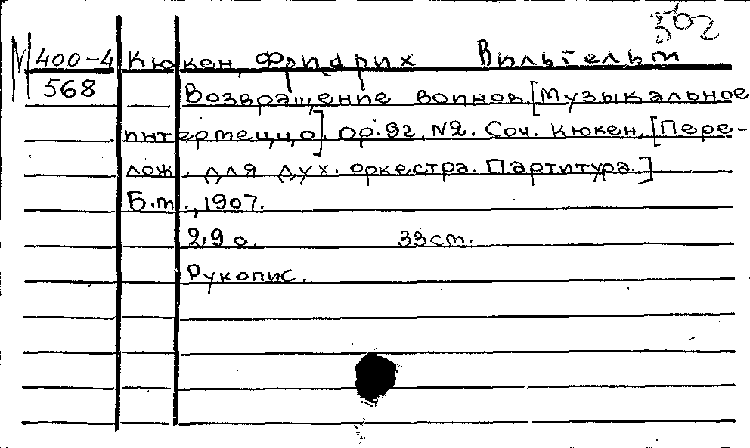 362
М 400-4 Кюкен, Фридрих Вильгельм
568 Возвращение воинов. [Музыкальное
интермеццо]. Ор. 92, №2. Соч. Кюкен, [Пере-
лож. для дух. оркестра. Партитура.]
Б.м., 1907.
33 см.
Рукопис.